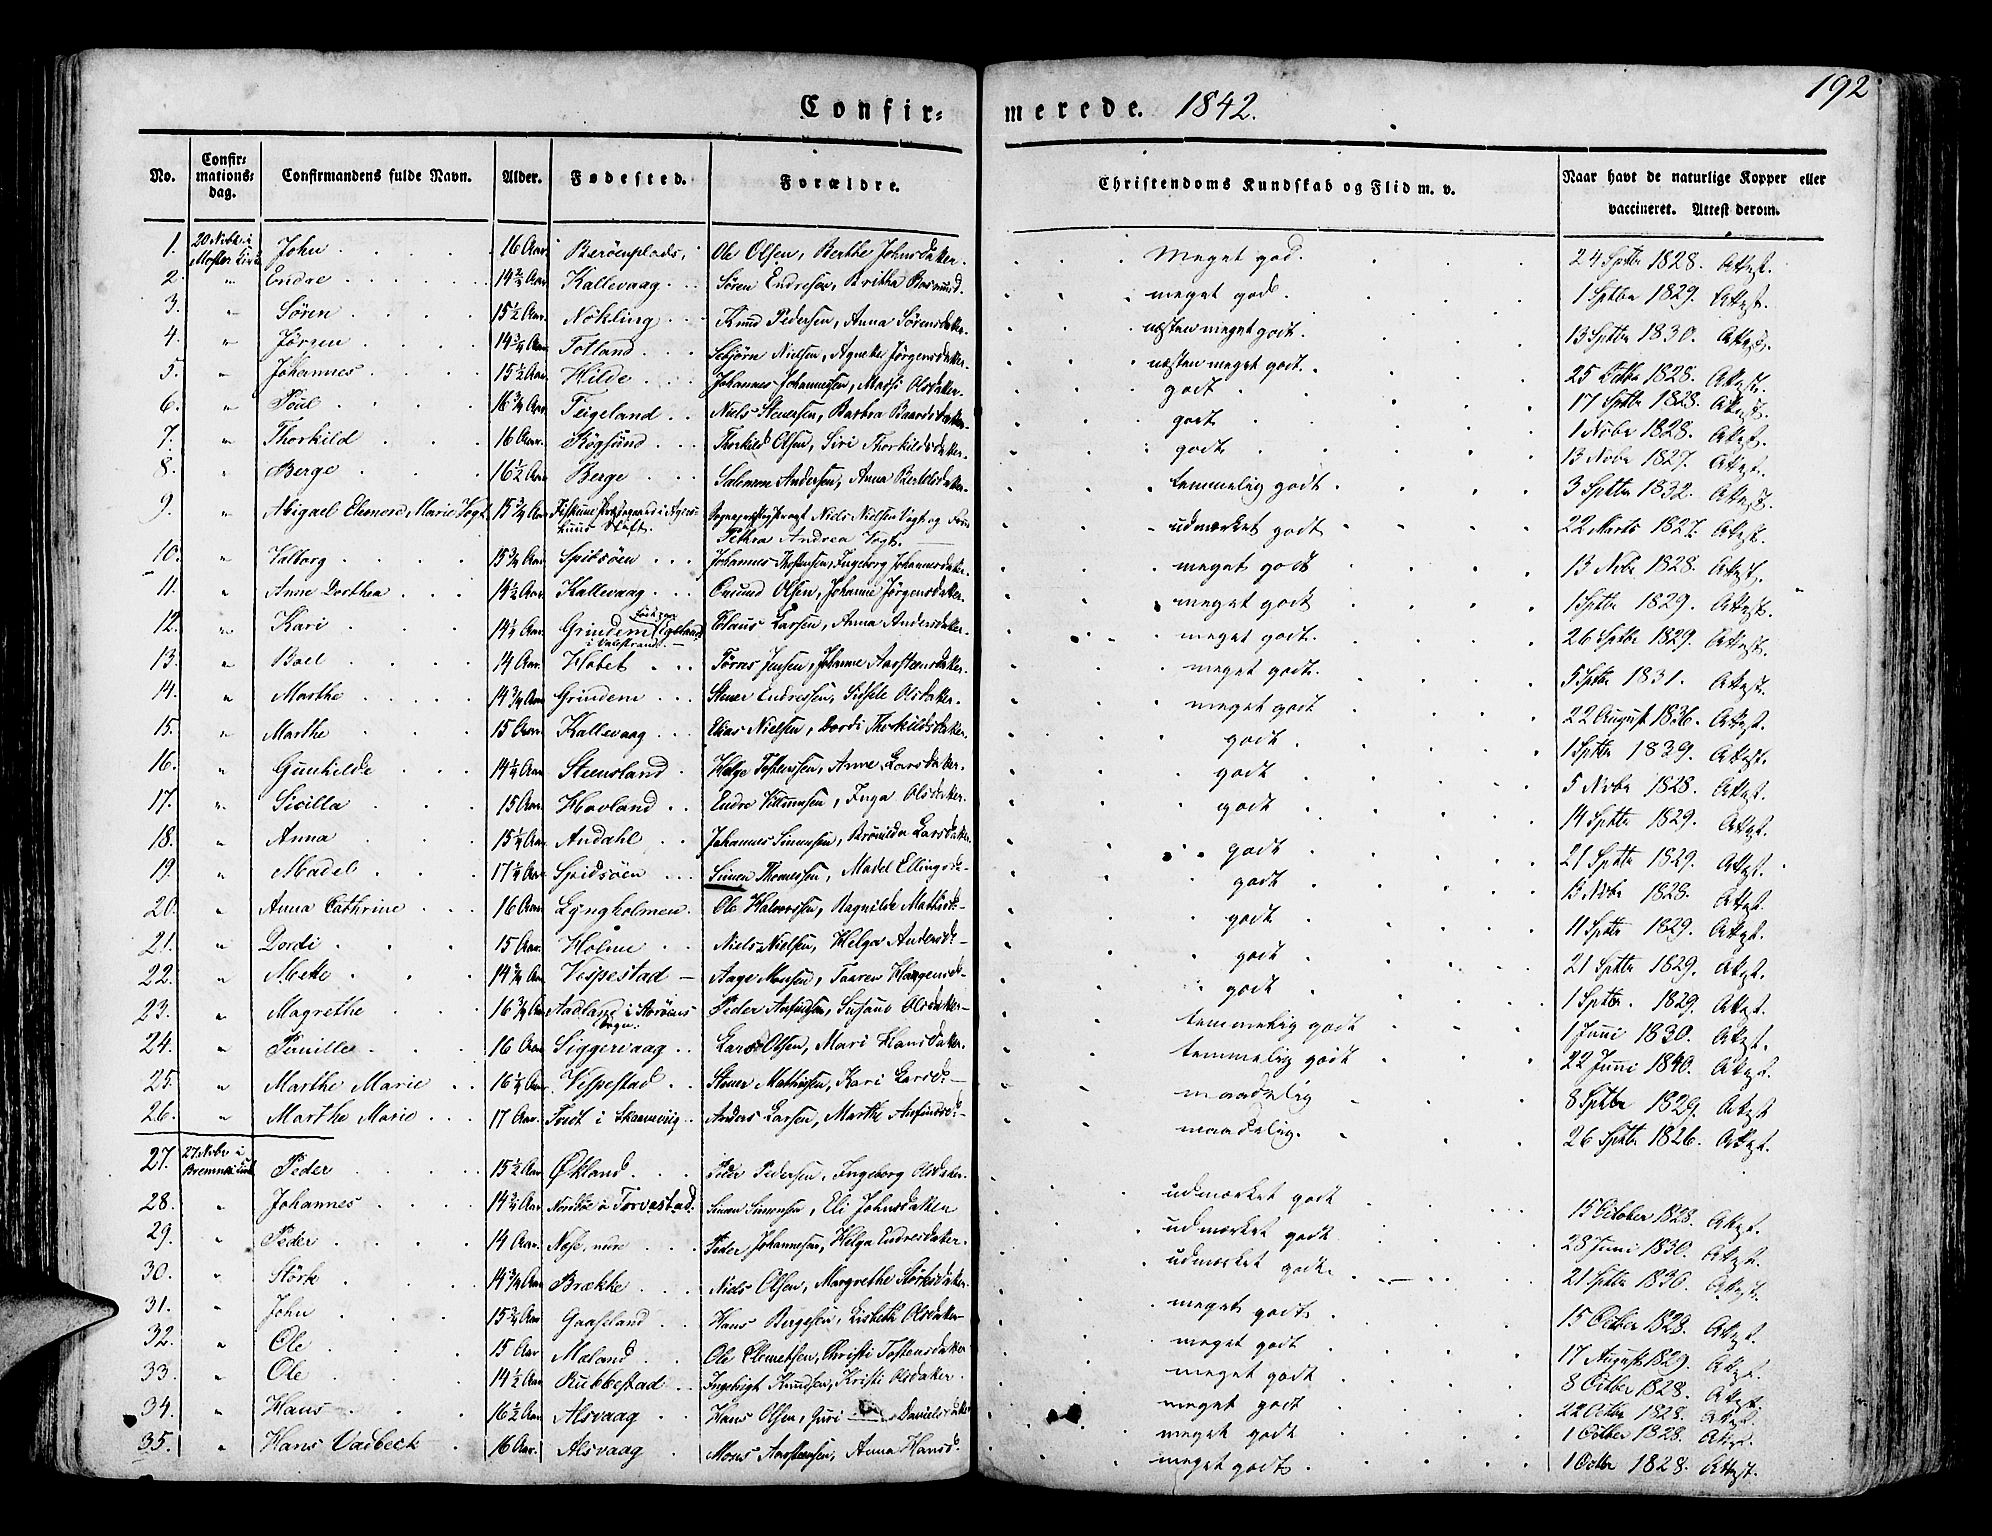 192
Confirmerede. 1842.
No. Confirmationsdag. Confirmandens fulde Navn. Alder. Fødested. Forældre. Christendoms Kundskab og Flid m. v. Naar havt de naturlige Kopper eller vaccineret. Attest derom.
1. 20 Novbr i Moster Kirke John 16 Aar Ole Olsen, Berthe Johnsdatter. Meget god. 24 Sptbr 1828. Attest.
2. " Endre Kallevaag Søren Endresen, meget godt. 1 Sptbr 1829. Attest.
3. " Søren 15½ Aar Nökling Knud Pedersen, Anna Sørensdatter. næsten meget godt. 13 Sptbr 1830. Attest.
4. " Jörgen Totland Nielsen, Agnethe Jörgensdatter. næsten meget godt.
5. " Johannes 15½ Aar Hilde Johannes Johannessen, Olsdatter. godt 25 Octbr 1828. Attest.
6. " Poul Teigeland Niels Steensen, Barbra Baardsdatter. godt 17 Sptbr 1828. Attest.
7. " Thorkild 16 Aar Thorkild Olsen, Siri Thorkildsdatter. godt 1 Novbr 1828. Attest.
8. " Berge 16½ Aar Berge Salemon Andersen, Anna Bertelsdatter. temmelig godt 13 Novbr 1827. Attest.
9. " Abigael Marie Vogt 15¾ Aar Niels Nielsen Vogt og Pethra Andrea Vogt. udmærket godt 3 Sptbr 1832. Attest.
22 Marts 1827. Attest.
10. " Valborg 15¾ Aar Spidsöen Johannes Ingeborg Johannesdatter. meget godt 13 Novbr 1828. Attest.
11. " Anne Dorthea 14½ Aar Kallevaag Omund Olsen, Johanne Jörgensdatter. meget godt 1 Sptbr 1829. Attest.
12. " Kari Grindem i Valestrand Claus Larsen, Anna Andersdatter. meget godt. 26 Sptbr 1829. Attest.
13. " Boel 14 Aar Hobet Törres Jensen, Johanne Aarstensdatter. meget godt 5 Sptbr 1831. Attest.
14. " Marthe 14¾ Aar Grindem Stener Endressen, Sidsele Olsdatter. meget godt 22 August 1836. Attest.
15. " Marthe 15 Aar Kallevaag Elias Nielsen, Dordi Thorkildsdatter. godt 1 Sptbr 1839. Attest.
16. " Gunhilde 14¼ Aar Steensland Helge Tostensen, Anne Larsdatter. godt 5 Novbr 1828. Attest.
17. " Sisilla 15 Aar Hovland Endre Inga Olsdatter. godt 14 Sptbr 1829. Attest.
18. " Anna 15¼ Aar Andahl Johannes Simensen, Larsdatter. godt 21 Sptbr 1829. Attest.
19. " Madel Spidsöen Simen Thomessen, Madel Ellingsd. godt 13 Novbr 1828. Attest.
20. " Anna Cathrine 16 Aar Lyngholmen Ole Halvorsen, Ragnilde Mathisd. godt 11 Sptbr 1829. Attest.
21. " Dordi 15 Aar Holme Niels Nielsen, Helga Andersd. godt 21 Sptbr 1829. Attest.
22. " Mette Vespestad Aage Monsen, Taaren Haagensd. godt 1 Sptbr. 1829. Attest.
23. " Magrethe 16¾ Aar Aadland i Storöens Sogn. Peder Susane Olsdatter temmelig godt 1 Juni 1830. Attest.
24. " Pernille 16 Aar Siggervaag Lars Olsen, Mari Hansdatter. temmelig godt 22 Juni 1840. Attest.
25. " Marthe Marie 16¼ Aar Vespestad Stener Mathisen, Kari Larsd. maadelig 8 Sptbr 1829. Attest
26. " Marthe Marie 17 Aar i Skaanevig Anders Larsen, Marthe Anfindsd. maadelig. 26 Sptbr 1826. Attest.
27. 27 Novbr i Bremnes Kirke Peder 15½ Aar Økland Peder Pedersen, Ingeborg Olsdatter. udmærket godt 15 October 1828. Attest.
28. " Johannes i Torvestad Simon Simonsen, Eli Johnsdatter udmærket godt 28 Juni 1830. Attest.
29. " Peder 14 Aar Peder Johannesen, Helga Endresdatter. udmærket godt. 21 Sptbr 1830. Attest.
30. " Störk 14¾ Aar Brække Niels Olsen, Margrethe Störksdatter. meget godt. 15 October 1828. Attest.
31. " John Gaaseland Hans Bergesen, Lisbeth Olsdatter meget godt 17 August 1829. Attest.
32. " Ole 15 Aar Moland Ole Clemetsen, Christi Tostensdatter meget godt 8 Octber 1828. Attest.
33. " Ole 14½ Aar Rubbestad Ingebrigt Knudsen, Kristi Olsdatter. meget godt 22 Octbr 1828. Attest.
34. " Hans 16½ Aar Alsvaag Hans Olsen, Guri Danielsdatter meget godt 1 Octber 1828. Attest.
35. " Hans Vadbeck 16 Aar. Alsvaag Mons Aarstensen, Anna Hansd. meget godt. 1 Octbr 1828. Attest.